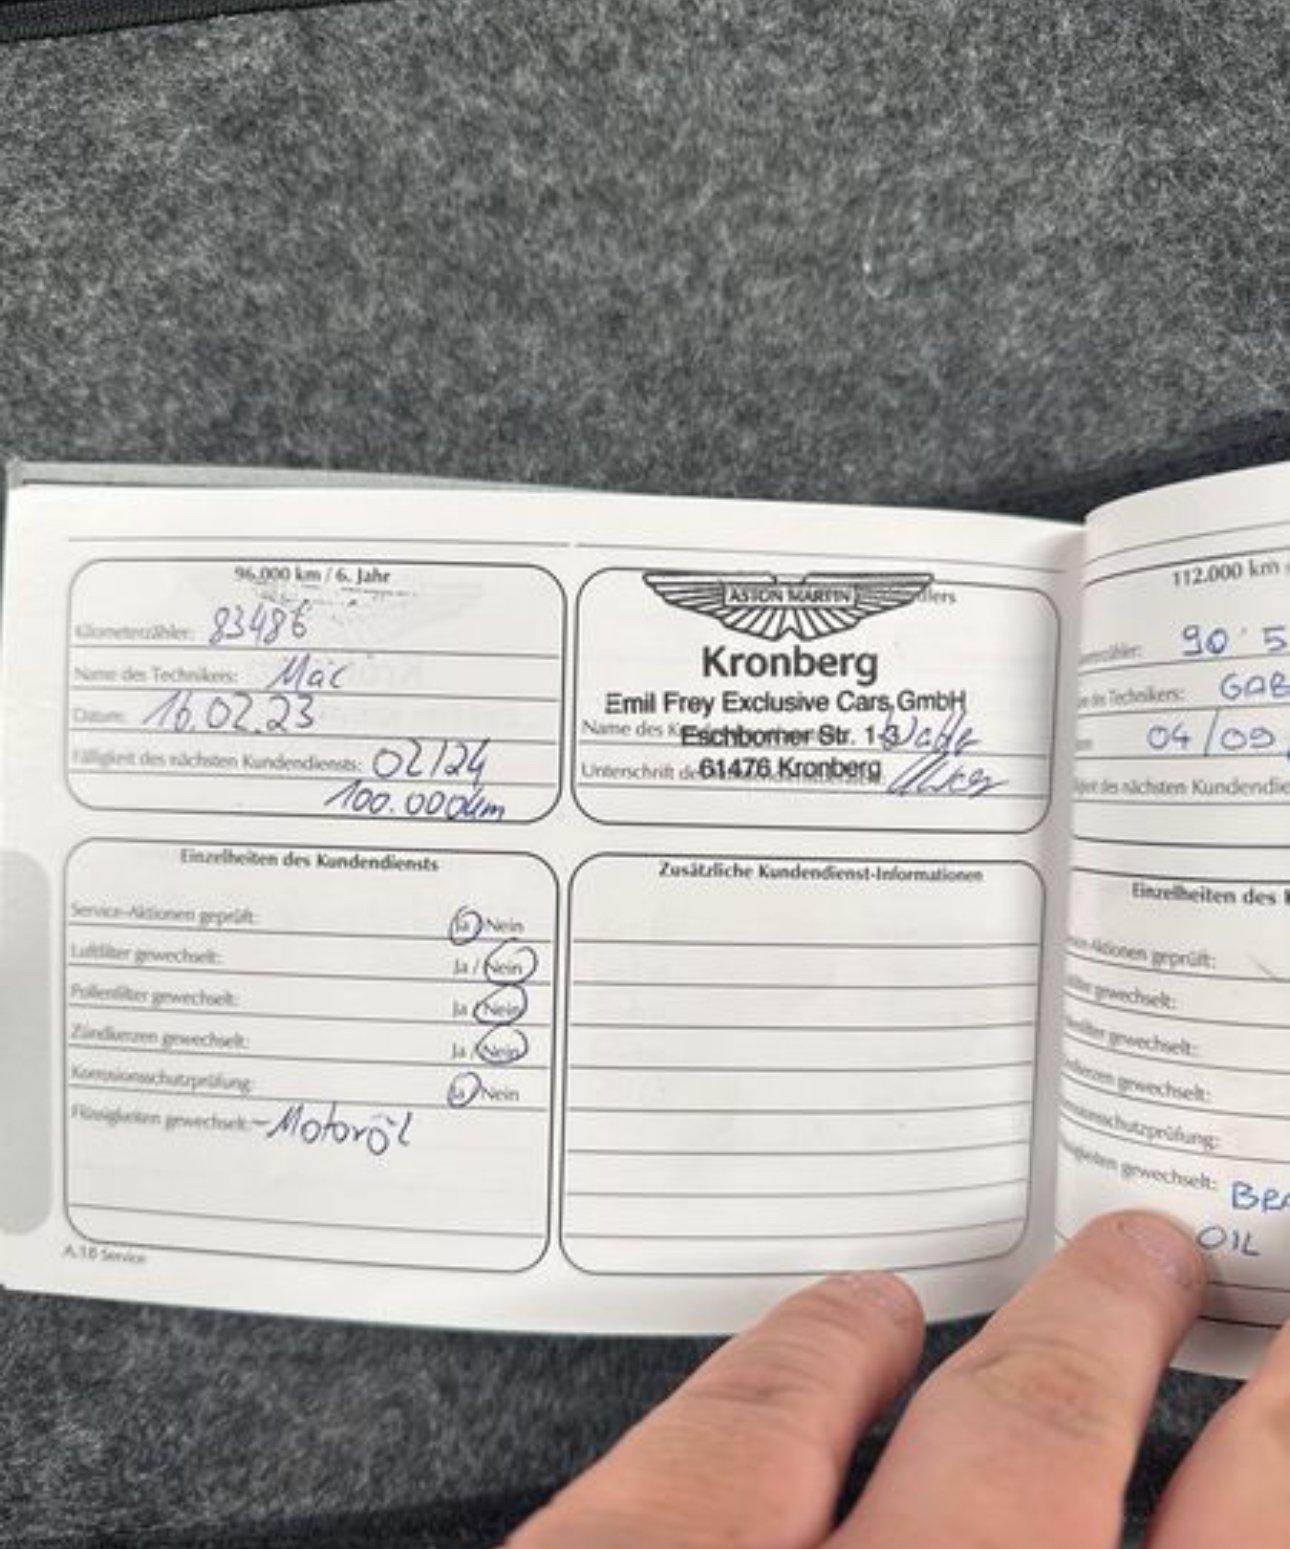 96.000 km / 6. Jahr
Kilometerzähler: 83486
Name des Technikers: Mac
Datum: 16.02.23
Fälligkeit des nächsten Kundendiensts: 02/24
100.000km
ASTON MARTIN
dlers
Kronberg
Emil Frey Exclusive Cars GmbH
Name des K
Eschborner Str. 1-3
Unterschrift de
61476 Kronberg
Einzelheiten des Kundendiensts
Service-Aktionen geprüft: Ja / Nein
Luftfilter gewechselt: Ja / Nein
Pollenfilter gewechselt: Ja / Nein
Zündkerzen gewechselt: Ja / Nein
Korrosionsschutzprüfung: Ja / Nein
Flüssigkeiten gewechselt: - Motoröl
A.18 Service
Zusätzliche Kundendienst-Informationen
112.000 km
zähler: 90 5
des Technikers: GAB
04/09
des nächsten Kundendie
Einzelheiten des K
Aktionen geprüft:
gewechselt:
gewechselt:
gewechselt:
schutzprüfung:
gewechselt: BRA
OIL